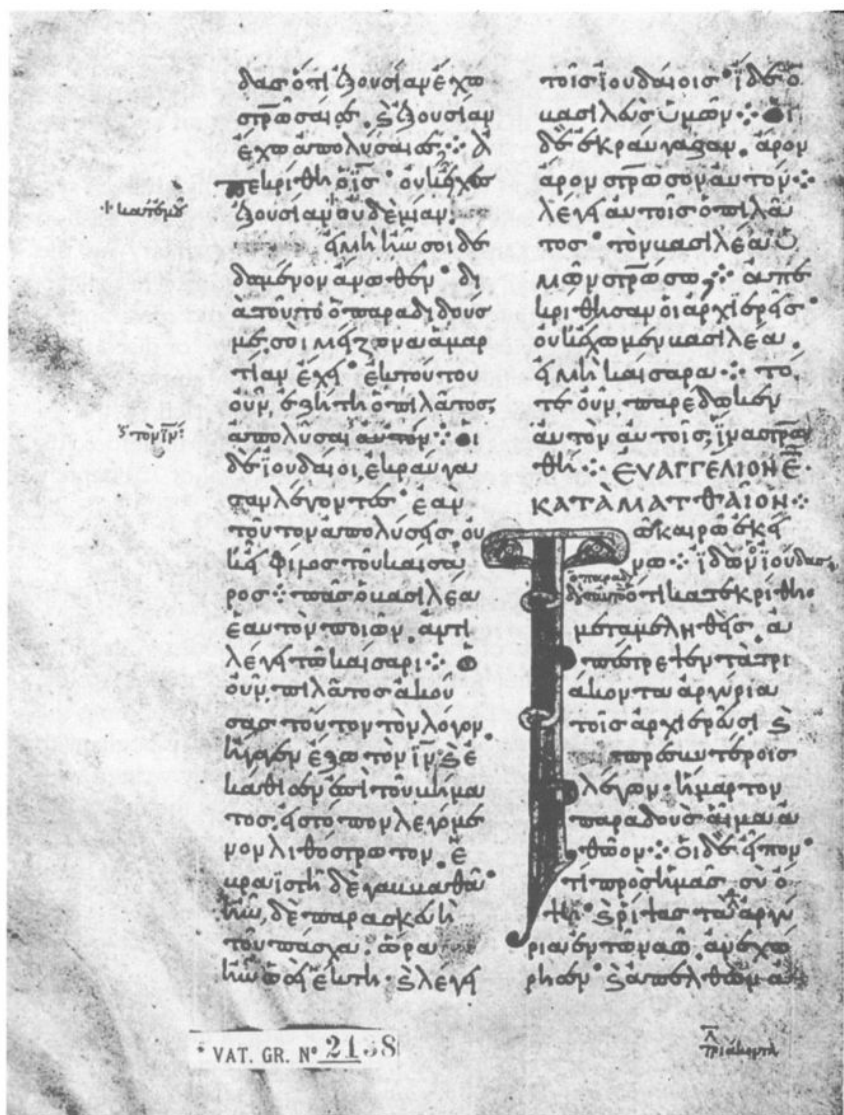 δας ὅτι ἐξουσίαν ἔχω
στρ̅ῶσαί σε. ϗ ἐξουσίαν
ἔχω ἀπολῦσαί σε ⁘ ἀ
πεκρίθη ὁ ι̅ς̅· οὐκ εἶχες
ἐξουσίαν οὐδεμίαν.
εἰ μὴ ἦν σοι δε
δομένον ἄνωθεν· δι
ὰ τοῦτο ὁ παραδιδούς
μέ σοι μείζονα ἁμαρ
τίαν ἔχει· ἐκ τούτου
οὖν, ἐζήτει ὁ πιλάτος,
ἀπολῦσαι αὐτόν ⁘ οἱ
δὲ ἰουδαῖοι, ἐκραύγα
σαν λέγοντες· ἐὰν
τοῦτον ἀπολύσῃς· οὐ
κ εἶ φίλος τοῦ καίσα
ρος ⁘ πᾶς ὁ βασιλέα
ἑαυτὸν ποιῶν. ἀντι
λέγει τῷ καίσαρι ⁘ ὁ
οὖν πιλάτος ἀκού
σας τοῦτον τὸν λόγον.
ἤγαγεν ἔξω τὸν ι̅ν̅ ϗ ἐ
κάθισεν ἐπὶ τοῦ βήμα
τος εἰς τόπον λεγόμε
νον λιθόστρωτον. ἑ
βραϊστὶ δὲ γαββαθᾶ·
ἦν δὲ παρασκευὴ
τοῦ πάσχα. ὥρα
ἦν ὡσεὶ ἕκτη. ϗ λέγει
κατ' ἐμοῦ
τὸν ι̅ν̅
τοῖς ἰουδαίοις· ἴδε ὁ
βασιλεὺς ὑμῶν ⁘ οἱ
δὲ ἐκραύγαζαν. ἆρον
ἆρον στρ̅ωσον αὐτόν ⁘
λέγει αὐτοῖς ὁ πιλά
τος· τὸν βασιλέα ὑ
μῶν στρ̅ώσω; ⁘ ἀπε
κρίθησαν οἱ ἀρχιερεῖς·
οὐκ ἔχομεν βασιλέα.
εἰ μὴ καίσαρα ⁘ τό
τε οὖν, παρέδωκεν
αὐτὸν αὐτοῖς, ἵνα στρ̅ω
θῇ ⁘ ΕΥΑΓΓΕΛΙΟΝ Ε̅
ΚΑΤᾺ ΜΑΤΘΑῖΟΝ ⁘
Τῷ καιρῷ ἐκεί
νῳ ⁘ ἰδὼν ἰούδας
ὁ παραδιδοὺς αὐτὸν ὅτι κατεκρίθη.
μεταμεληθεὶς. ἀ
πέστρεψεν τὰ τρι
άκοντα ἀργύρια
τοῖς ἀρχιερεῦσι ϗ
πρεσβυτέροις
λέγων· ἥμαρτον
παραδοὺς αἷμα ἀ
θῶον ⁘ οἱ δὲ εἶπον·
τί πρὸς ἡμᾶς σὺ ὄ
ψῃ· ϗ ῥίψας τὰ ἀργύ
ρια ἐν τῷ ναῷ. ἀνεχώ
ρησεν· ϗ ἀπελθὼν ἀ
VAT. GR. Nº 2138
Λ̅
τριάκοντα